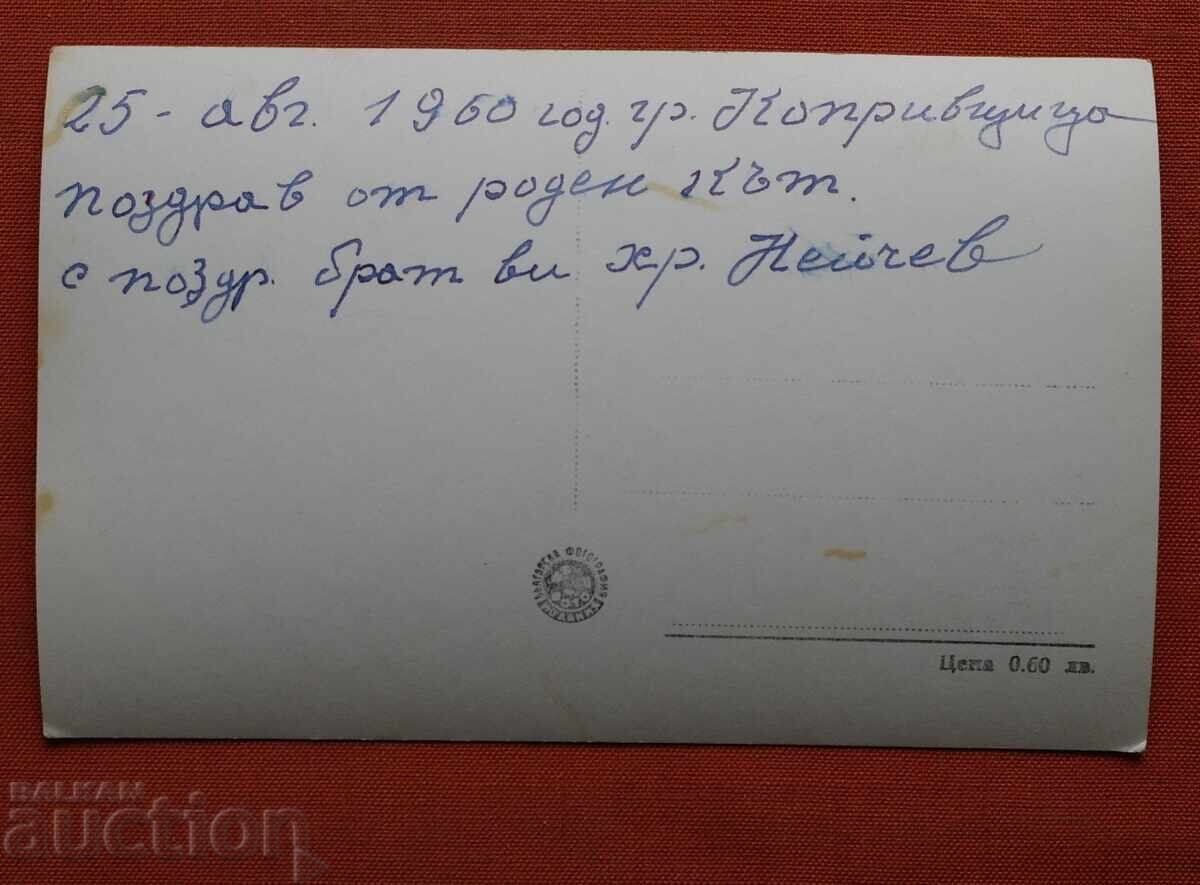 25 - авг. 1960 год. гр. Копривщица
поздрав от роден кът.
с поздр. брат ви хр. Нейчев
БЪЛГАРСКА ФОТОГРАФИЯ
Цена 0.60 лв.
BALKAN
auction